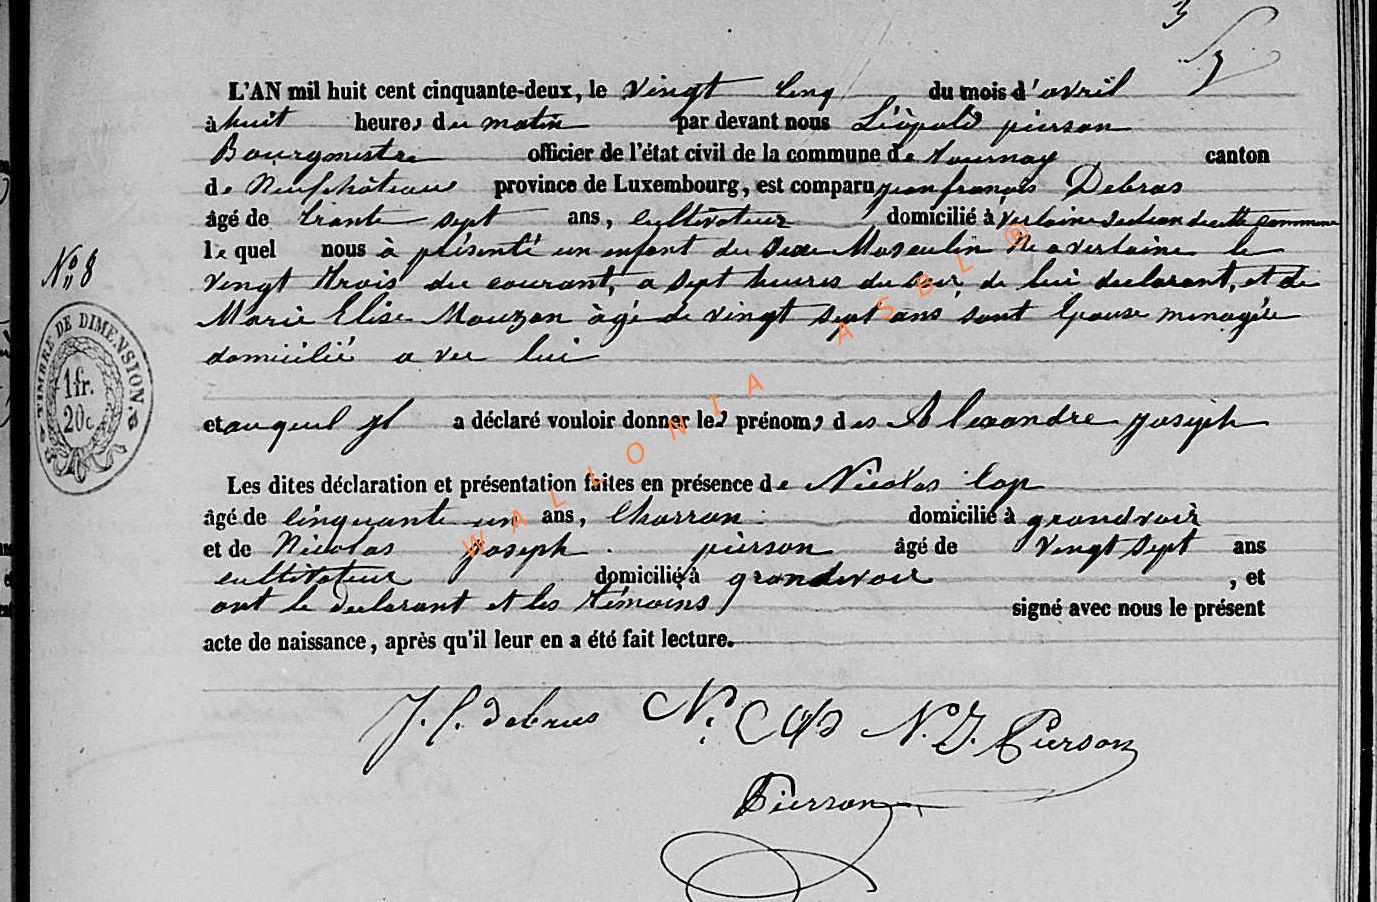 3
L'AN mil huit cent cinquante-deux, le vingt Cinq du mois d'avril
à huit heures du matin par devant nous Léopold pierson
Bourgmestre officier de l'état civil de la commune de tournay canton
de Neufchâteau province de Luxembourg, est comparu jean françois Debras
âgé de trante sept ans, cultivateur domicilié à verlaine section de cette commune
le quel nous à présenté un enfant du sexe Masculin né a verlaine le
N° 8
vingt trois du courant, a sept heures du soir, de lui declarant, et de
Marie Elise Mouzon àgé de vingt sept ans sont Epouse menagère
domicilié a vec lui
TIMBRE DE DIMENSION
1 fr.
20 c
et auquel jl a déclaré vouloir donner les prénoms des Alexandre joseph
Les dites déclaration et présentation faites en présence de Nicolas Cop
âgé de Cinquante un ans, Charron domicilié à grandvoir
et de Nicolas joseph pierson âgé de vingt sept ans
cultivateur domicilié à grandvoir , et
ont le declarant et les témoins signé avec nous le présent
acte de naissance, après qu'il leur en a été fait lecture.
J. f. debras N. Cop N. J. Pierson
Pierson
WALLONIA ASBL ®